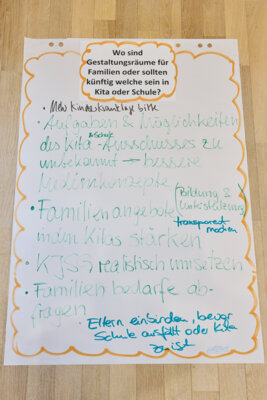 Wo sind
Gestaltungsräume für
Familien oder sollten
künftig welche sein in
Kita oder Schule?
• Mehr Kinderkranktage bitte
• Aufgaben & Möglichkeiten
& Schule
des Kita-Ausschusses zu
unbekannt → bessere
(Bildung &
Unterstützung)
• Familienangebote
transparent
machen
in den Kitas stärken
• KJSG realistisch umsetzen
• Familienbedarfe ab-
fragen
• Eltern einbinden, bevor
Schule ausfällt oder Kita
zu ist